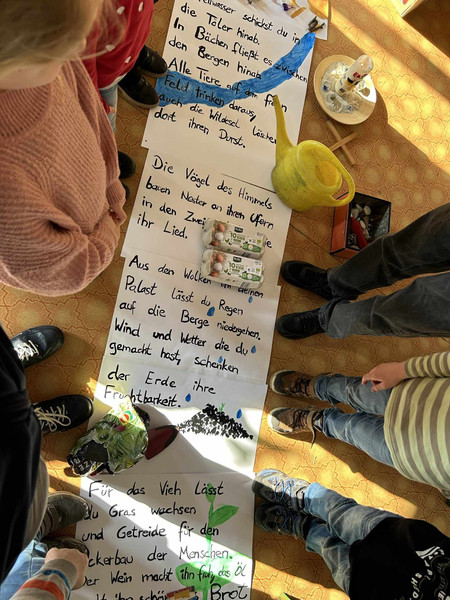 schickst du in
die Täler hinab.
In Bächen fließt es zwischen
den Bergen hinab.
Alle Tiere auf dem freien
Feld trinken daraus,
auch die Wildesel löschen
dort ihren Durst.
Die Vögel des Himmels
bauen Nester an ihren Ufern
in den
ihr Lied.
10
10
Aus den Wolken deinen
Palast lässt du Regen
auf die Berge niedergehen.
Wind und Wetter die du
gemacht hast, schenken
der Erde ihre
Fruchtbarkeit.
Für das Vieh lässt
du Gras wachsen
und Getreide für den
Ackerbau der Menschen.
Der Wein macht ihn froh, das Öl
Brot